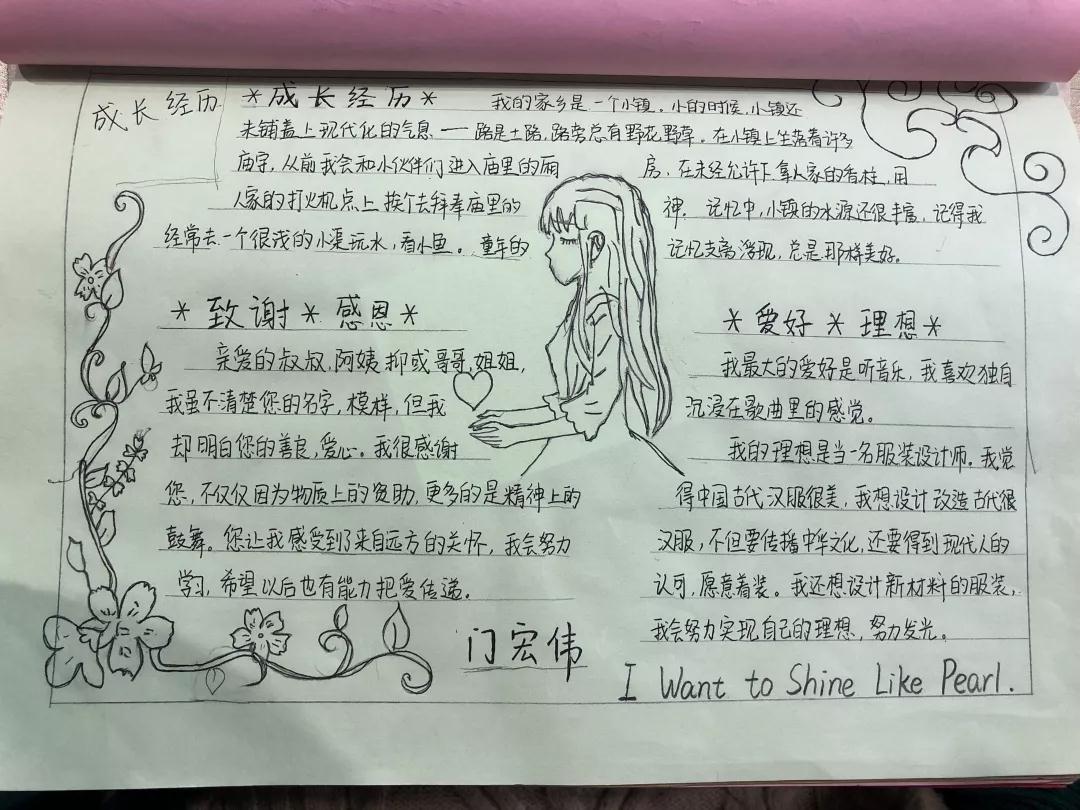 成长经历
*成长经历*
我的家乡是一个小镇。小的时候,小镇还
未铺盖上现代化的气息——路是土路,路旁总有野花野草。在小镇上坐落着许多
庙宇,从前我会和小伙伴们进入庙里的厢房,在未经允许下拿人家的香柱,用
人家的打火机点上挨个去拜奉庙里的神。记忆中,小镇的水源还很丰富,记得我
经常去一个很浅的小渠玩水,看小鱼。童年的记忆支离浮现,总是那样美好。
*致谢*感恩*
亲爱的叔叔,阿姨抑或哥哥,姐姐,
我虽不清楚您的名字,模样,但我
却明白您的善良,爱心。我很感谢
您,不仅仅因为物质上的资助,更多的是精神上的
鼓舞。您让我感受到了来自远方的关怀,我会努力
学习,希望以后也有能力把爱传递。
*爱好*理想*
我最大的爱好是听音乐,我喜欢独自
沉浸在歌曲里的感觉。
我的理想是当一名服装设计师。我觉
得中国古代汉服很美,我想设计改造古代很
汉服,不但要传播中华文化,还要得到现代人的
认可,愿意着装。我还想设计新材料的服装,
我会努力实现自己的理想,努力发光。
门宏伟
I Want to Shine Like Pearl.